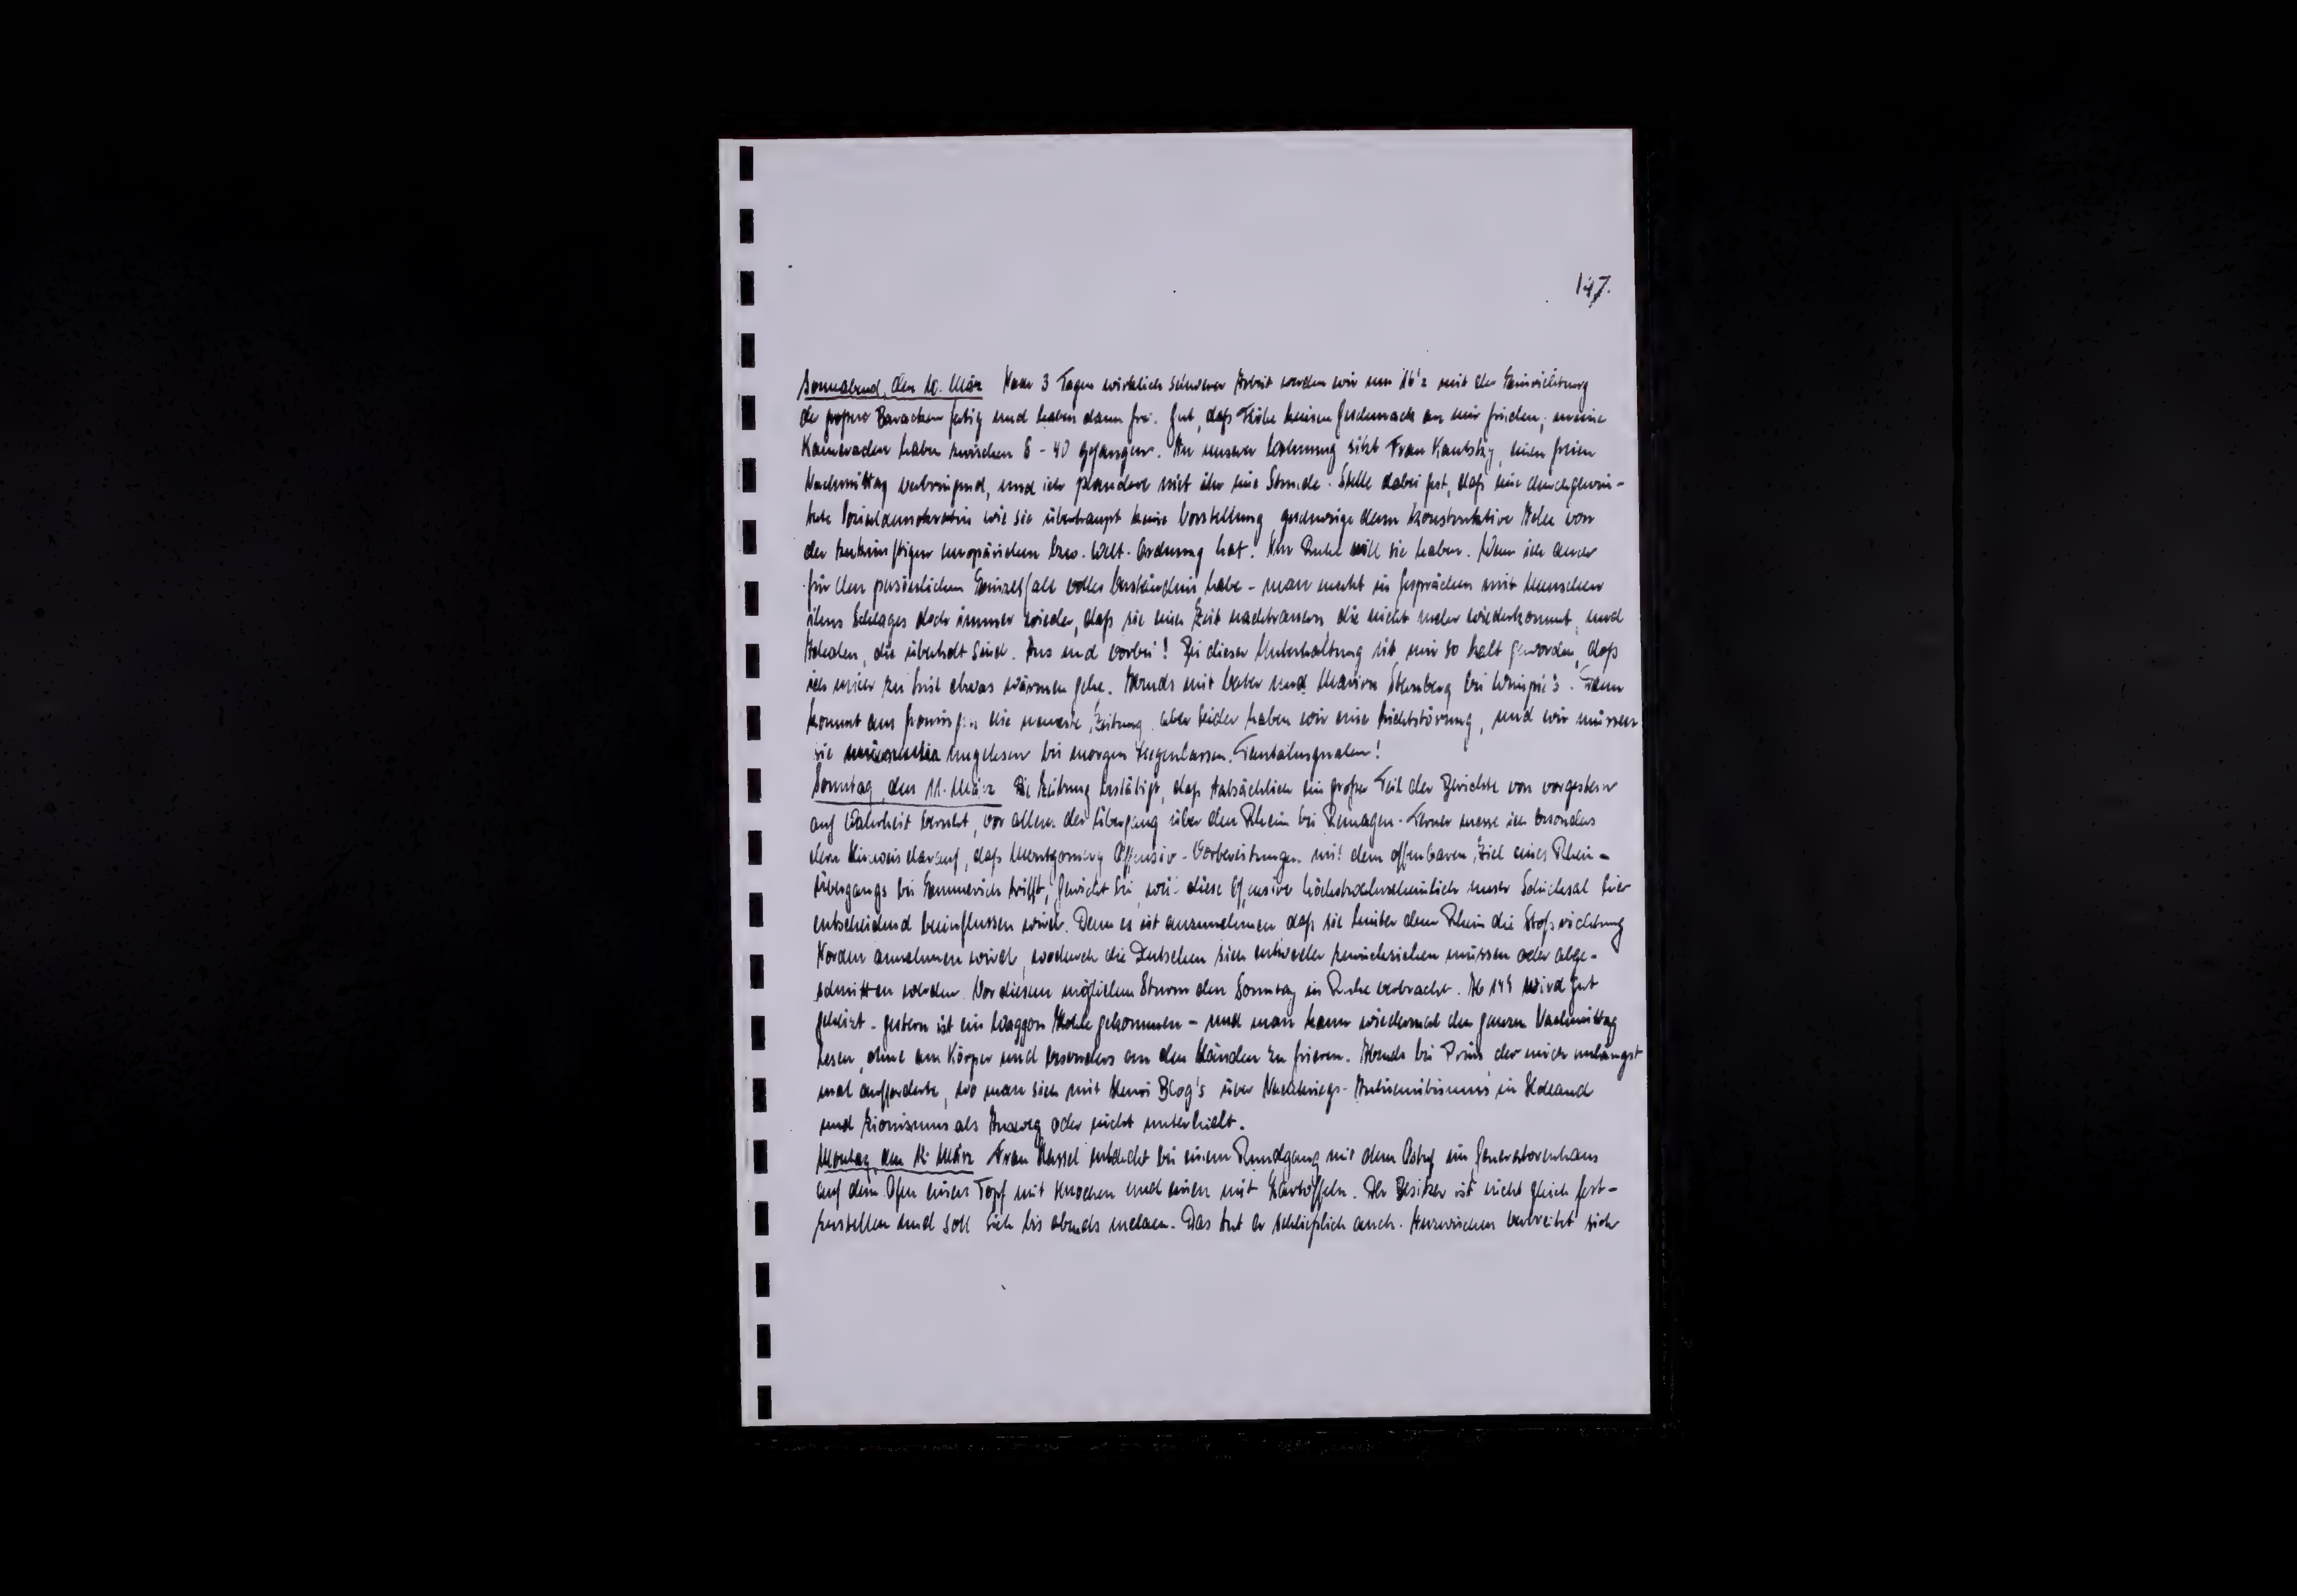 147.
Sonnabend, den 10. März Nach 3 Tagen wirklich schwerer Arbeit werden wir um 16'2 mit der Einrichtung
der großen Baracken fertig und haben dann frei. Gut, daß Flöhe keinen Geschmack an mir finden; meine
Kameraden haben zwischen 6 - 40 gefangen. In unserer Wohnung sitzt Frau Kautsky, einen freien
Nachmittag verbringend, und ich plaudere mit ihr eine Stunde. Stelle dabei fest, daß eine
Sozialdemokratin wie sie überhaupt keine Vorstellung, geschweige denn konstruktive Idee von
der zukünftigen europäischen bzw. Welt-Ordnung hat. Ihre Ruhe will sie haben. Wenn ich auch
für den persönlichen Einzelfall volles Verständnis habe - man merkt in Gesprächen mit Menschen
ihres Schlages doch immer wieder, daß sie einer Zeit nachtrauern, die nicht mehr wiederkommt, und
Idealen, die überholt sind. Aus und vorbei! Bei dieser Unterhaltung ist mir so kalt geworden, daß
ich mich zu etwas wärmen gehe. Abends mit Vater und Marion Sternberg bei Dann
kommt aus die neueste Zeitung, aber leider haben wir eine Lichtstörung, und wir müssen
sie ungelesen bis morgen liegenlassen. Tantalusqualen!
Sonntag, den 11. März Die Zeitung bestätigt, daß tatsächlich ein großer Teil der Berichte von vorgestern
auf Wahrheit beruht, vor allem der Übergang über den Rhein bei Remagen. Ferner messe ich besonders
dem Hinweis darauf, daß Montgomery Offensiv-Vorbereitungen mit dem offenbaren Ziel eines Rhein-
Übergangs bei Emmerich trifft, Gewicht bei, weil diese Offensive höchstwahrscheinlich unser Schicksal hier
entscheidend beeinflussen wird. Denn es ist anzunehmen, daß sie hinter dem Rhein die Stoßrichtung
Norden annehmen wird, wodurch die Deutschen sich entweder zurückziehen müssen oder abge-
schnitten werden. Vor diesem möglichen Sturm den Sonntag in Ruhe verbracht. Ab wird gut
geheizt - gestern ist ein Waggon Kohle gekommen - und man kann wiedermal den ganzen Nachmittag
lesen, ohne am Körper und besonders an den Händen zu frieren. Abends bei Prins, der mich unlängst
mal aufforderte, wo man sich mit Henri Blog's über Nachkriegs-Antisemitismus in Holland
und Zionismus als Ausweg oder nicht unterhielt.
Montag, den 12. März Frau Hassel entdeckt bei einem Rundgang mit dem im Generatorenhaus
auf dem Ofen einen Topf mit Knochen und einen mit Kartoffeln. Der Besitzer ist nicht gleich fest-
zustellen und soll sich bis abends melden. Das tut er schließlich auch. Inzwischen verbreitet sich